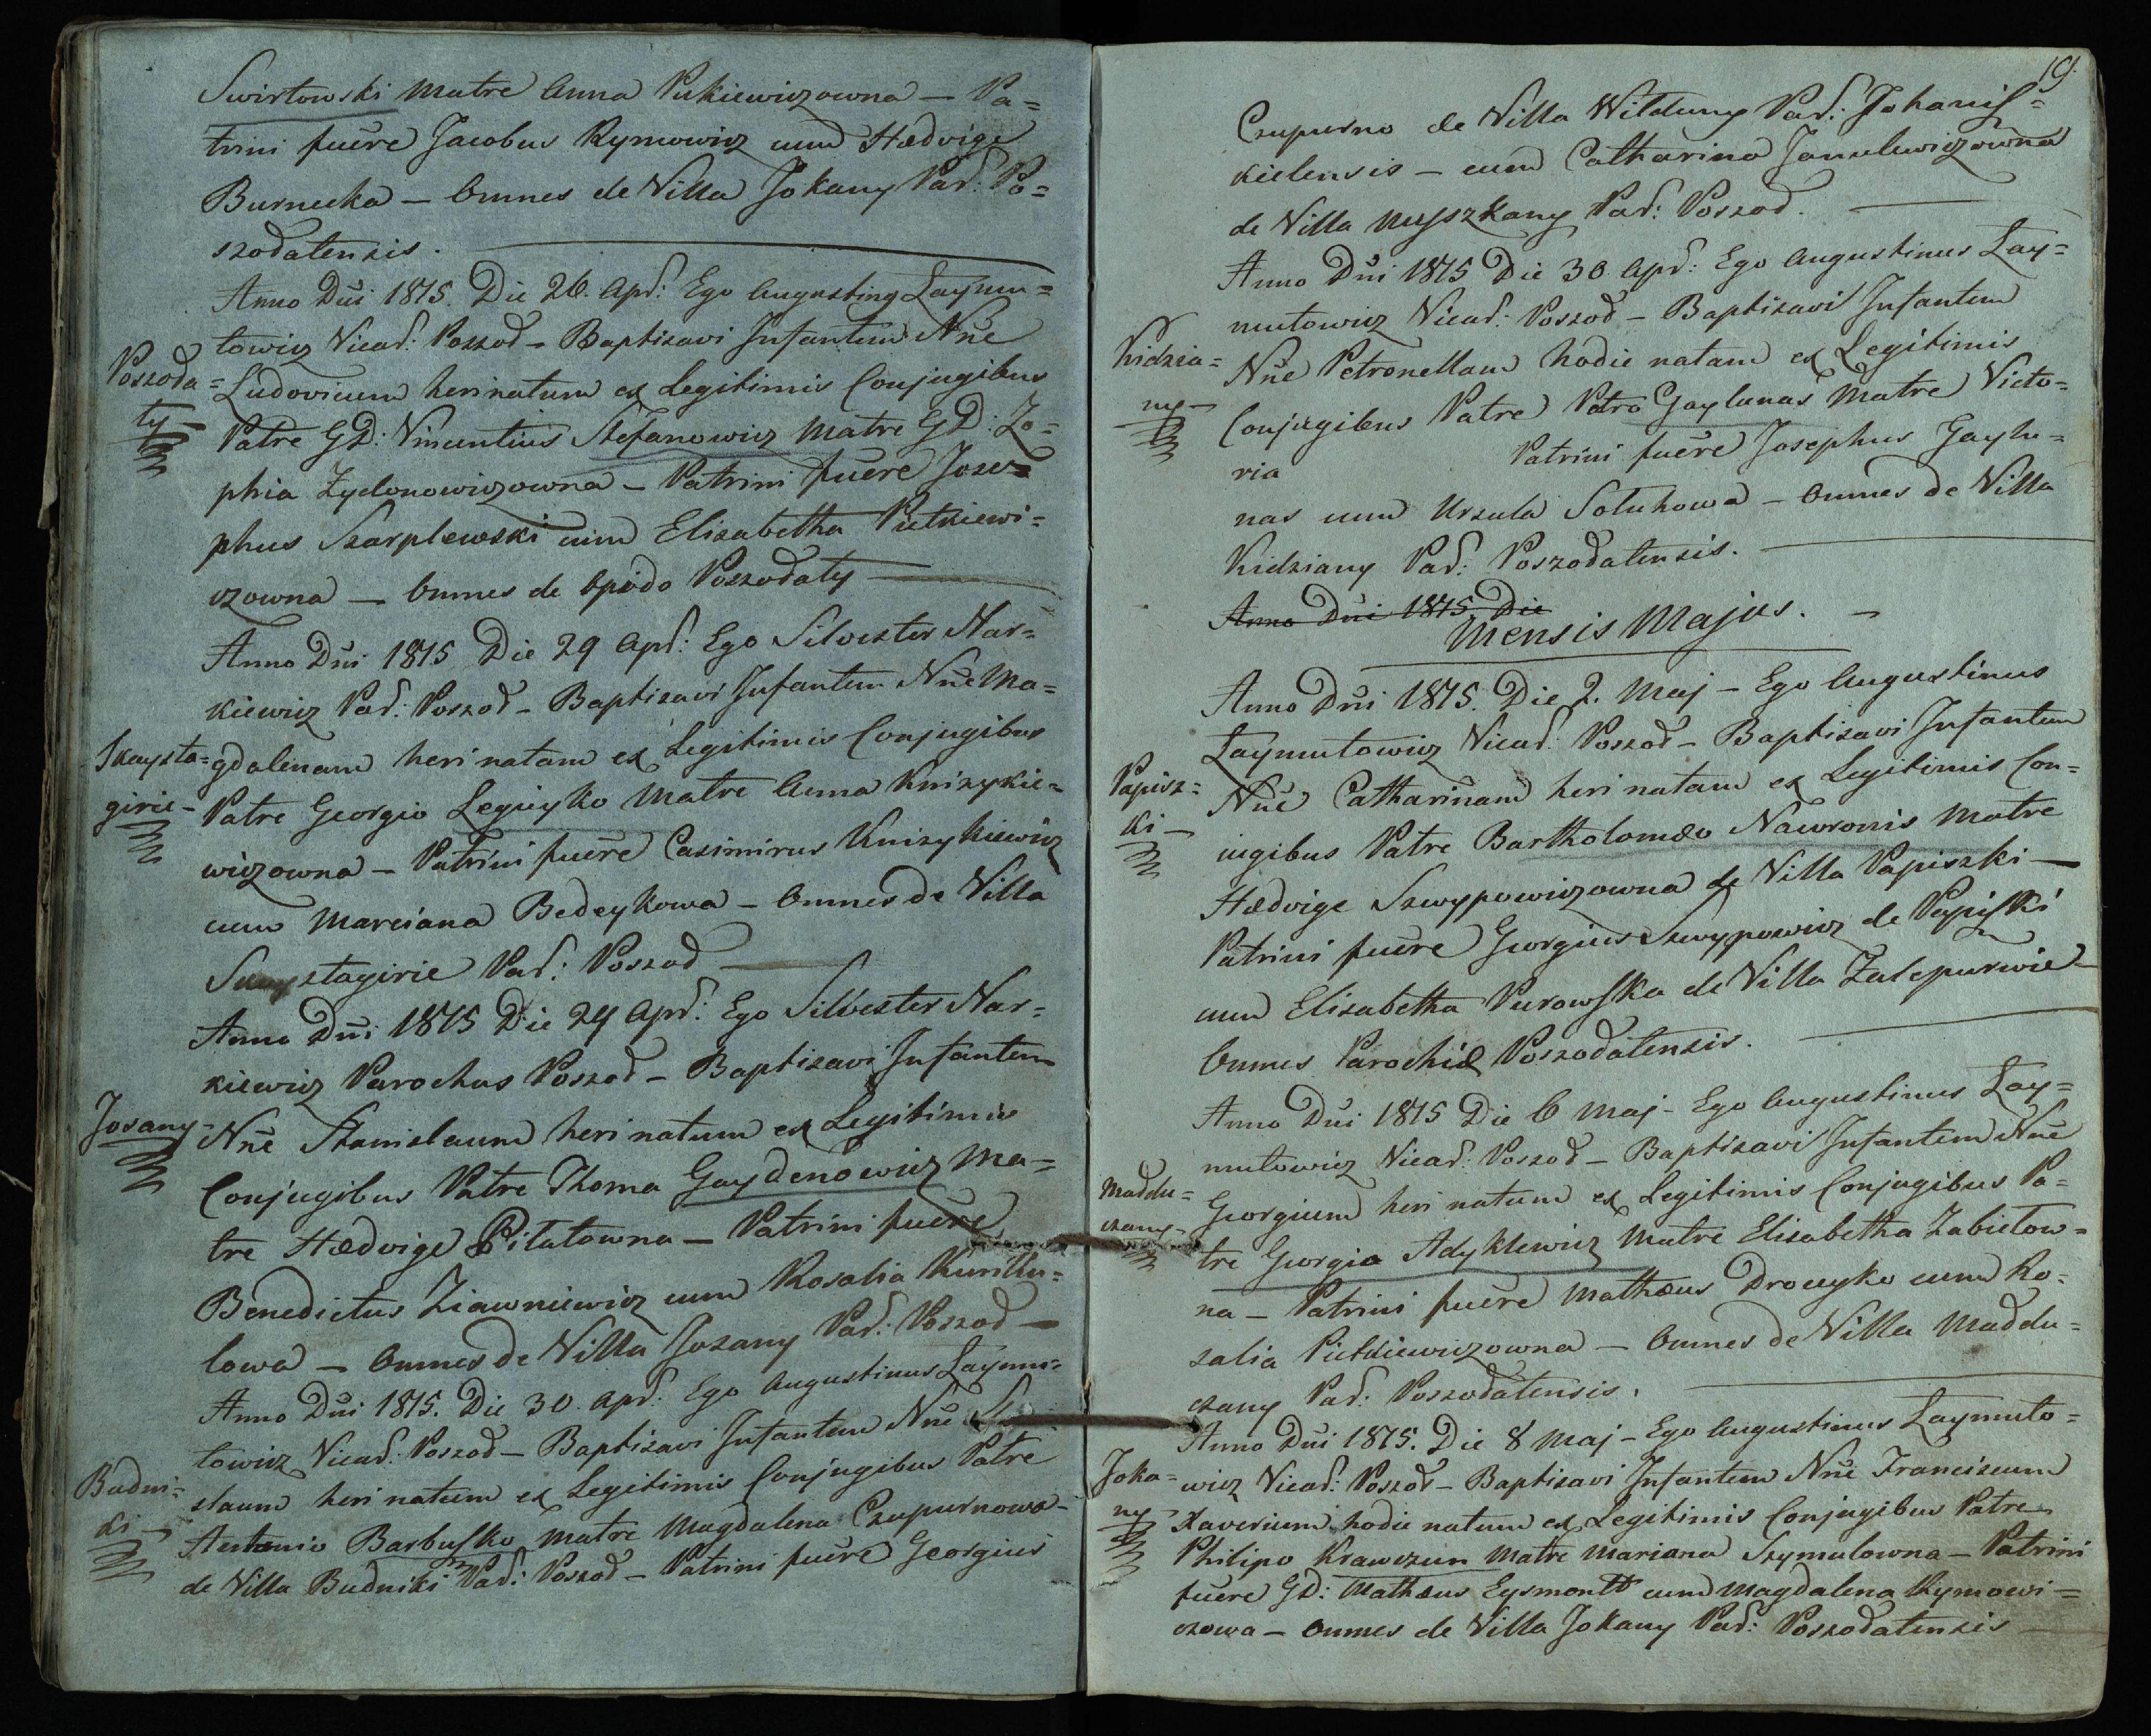 Swirtowski Matre Anna Pukiewiczowna — Pa=
trini fuere Jacobus Rymowicz cum Hædvige
Burnecka — Omnes de Villa Jokany Par: Po=
szodatensis.
Anno Dńi 1815. Die 26. Apr: Ego Augustinq Laymu=
towicz Vicar: Poszod — Baptisavi Infantem Nñe
Poszoda=
ty —
Ludovicum heri natum ex Legitimis Conjugibus
Patre GD: Vincentius Stefanowicz Matre GD: Zo=
phia Zydonowiczowna — Patrini fuere Jose=
phus Szarplewski cum Elisabetha Pietkiewi=
czowna — Omnes de Opido Poszodaty —
Anno Dńi 1815 Die 29 Apr: Ego Silvester Nar=
kiewicz Par: Poszod — Baptisavi Infantem Nñe Ma=
Skaysta=
girie —
gdalenam heri natam ex Legitimis Conjugibus
Patre Georgio Leguyko Matre Anna Knizykie=
wiczowna — Patrini fuere Casimirus Knizykiewicz
cum Marciana Bedeykowa — Omnes de Villa
Skaystagirie Par: Poszod —
Anno Dńi 1815 Die 29 Apr: Ego Silvester Nar=
kiewicz Parochus Poszod — Baptisavi Infantem
Josany —
Nñe Stanislaum heri natum ex Legitimis
Conjugibus Patre Thoma Gaydenowicz Ma=
tre Hædvige Pitatowna — Patrini fuere
Benedictus Ziawniewicz cum Rosalia
lowa — Omnes de Villa Jozany Par: Poszod —
Anno Dńi 1815. Die 30. Apr: Ego Augustinus Laymu=
towicz Vicar: Poszod — Baptisavi Infantem Nñe
Budni=
ki —
slaum heri natum ex Legitimis Conjugibus Patre
Antonio Barbusko Matre Magdalena Czupurnowa —
de Villa Budniki Par: Poszod — Patrini fuere Georgius
19.
Czupurno de Villa Wilduny Par: Johanis=
kielensis — cum Catharina Janulewiczowna
de Villa Myszkany Par: Poszod. —
Anno Dńi 1815 Die 30 Apr: Ego Augustinus Lay=
mutowicz Vicar: Poszod — Baptisavi Infantem
Kidzia=
ny —
Nñe Petronellam hodie natam ex Legitimis
Conjugibus Patre Petro Gaylunas Matre Victo=
ria Patrini fuere Josephus Gaylu=
nas cum Urzula Soluhowa — Omnes de Villa
Kidziany Par: Poszodatensis. —
Anno Dńi 1815 Die
Mensis Majus. —
Anno Dńi 1815. Die 2. Maj — Ego Augustinus
Laymutowicz Vicar: Poszod — Baptisavi Infantem
Papisz=
ki —
Nñe Catharinam heri natam ex Legitimis Con=
iugibus Patre Bartholomæo Nawronis Matre
Hædvige Szwypowiczowna de Villa Papiszki —
Patrini fuere Georgius Szwypowicz de Papiski
cum Elisabetha Purowska de Villa Zalepurwie —
Omnes Parochiæ Poszodatensis. —
Anno Dńi 1815 Die 6 Maj — Ego Augustinus Lay=
mutowicz Vicar: Poszod — Baptisavi Infantem Nñe
Maddu=
czany —
Georgium heri natum ex Legitimis Conjugibus Pa=
tre Georgio Adyklewicz Matre Elisabetha Zabietow=
na — Patrini fuere Mathæus Drouyko cum Ro=
salia Pietkiewiczowna — Omnes de Villa Maddu=
czany Par: Poszodatensis. —
Anno Dńi 1815. Die 8 Maj — Ego Augustinus Laymuto=
Joka=
ny —
wicz Vicar: Poszod — Baptisavi Infantem Nñe Franciscum
Xaverium hodie natum ex Legitimis Conjugibus Patre
Philipo Krawczun Matre Mariana Szymulowna — Patrini
fuere GD: Mathæus Eysmontt cum Magdalena Rymowi=
czowa — Omnes de Villa Jokany Par: Poszodatensis —